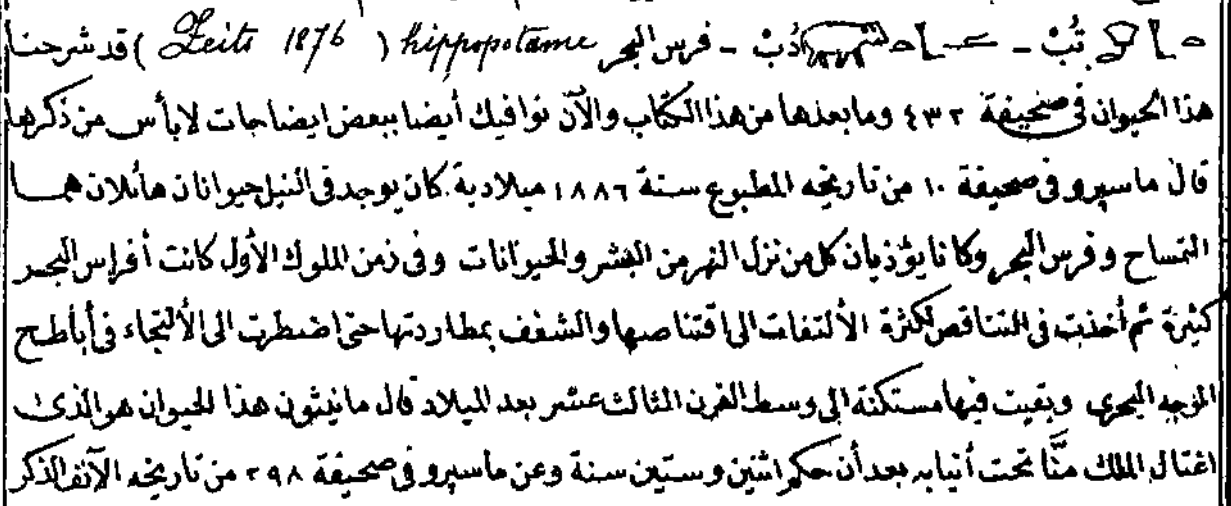 تُبْ - دُبْ - فرس البحر hippopotame ( Zeits 1876 ) قد شرحنا
هذا الحيوان في صحيفة ٤٣٢ وما بعدها من هذا الكتاب والآن نوافيك أيضا ببعض ايضاحات لا بأس من ذكرها
قال ماسپرو في صحيفة ١٠ من تاريخه المطبوع سنة ١٨٨٦ ميلادية كان يوجد في النيل حيوانان هائلان هما
التمساح و فرس البحر وكانا يؤذيان كل من نزل النهر من البشر والحيوانات وفي زمن الملوك الأول كانت أفراس البحر
كثيرة ثم أخذت في التناقص لكثرة الألتفات الى اقتناصها والشغف بمطاردتها حتى اضطرت الى الألتجاء في أباطح
الوجه البحري وبقيت فيها مستكنة الى وسط القرن الثالث عشر بعد الميلاد قال مانيثون هذا الحيوان هو الذى
اغتال الملك منَّا تحت أنيابه بعد أن حكم اثنين وستين سنة وعن ماسپرو في صحيفة ٢٩٨ من تاريخه الآنف الذكر